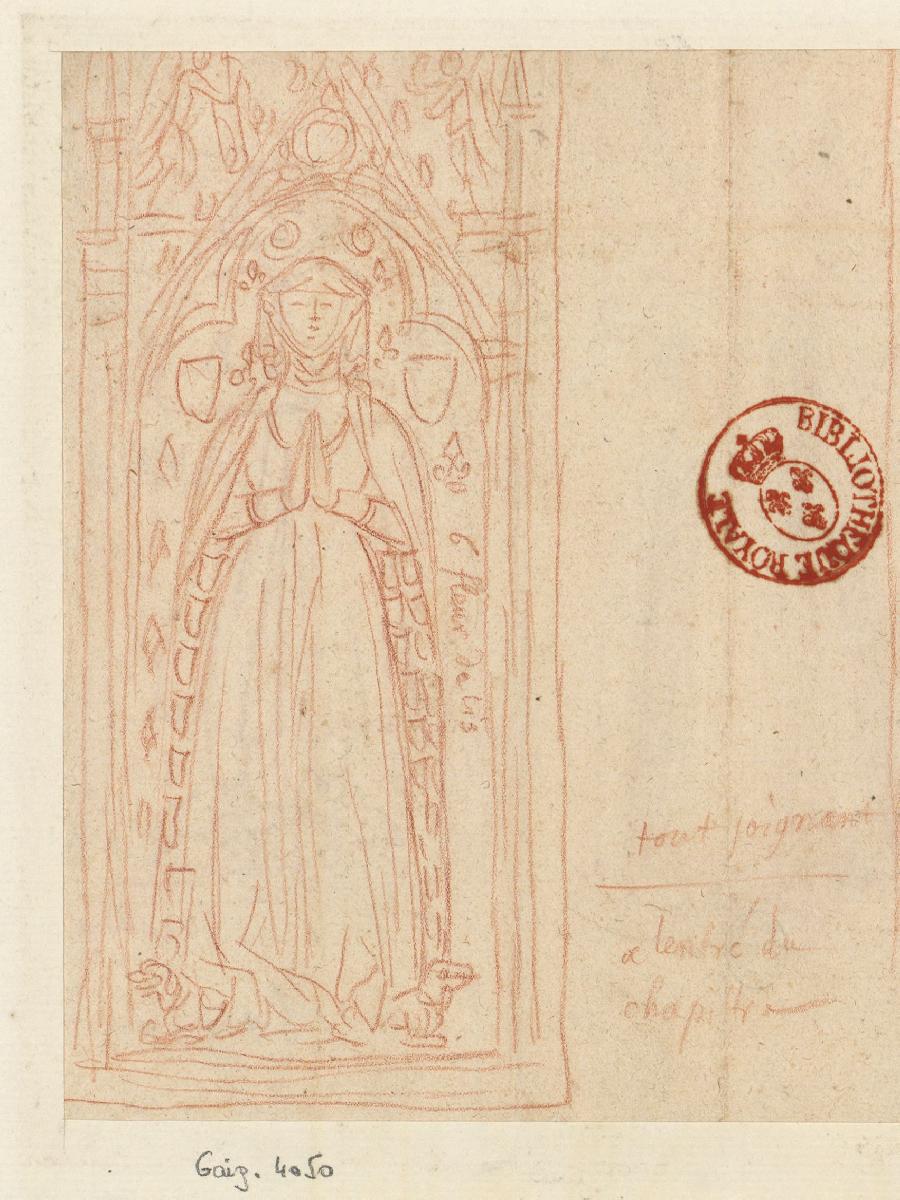 6 fleurs de lis
BIBLIOTHEQUE ROYALE
tout joignant
a lentré du
chapitre
Gaig. 4050